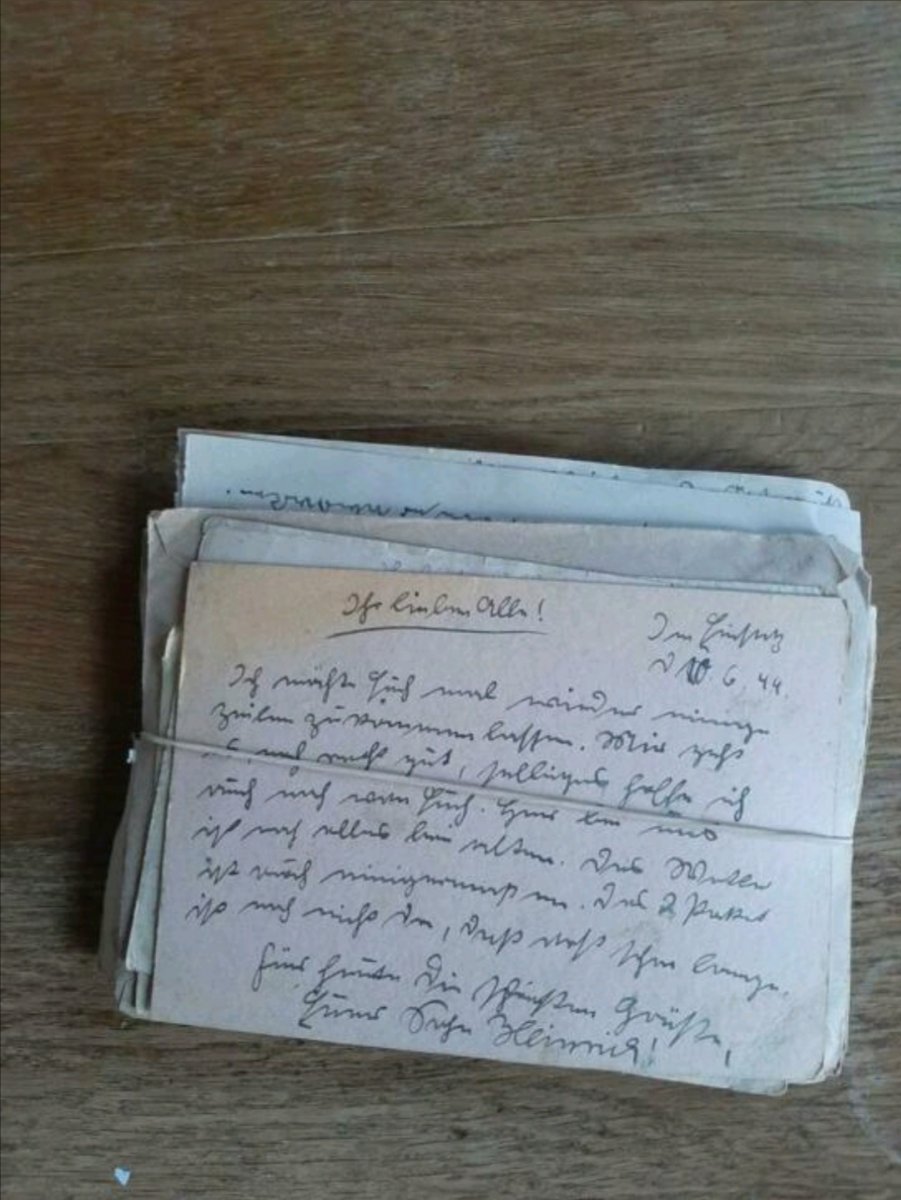 Ihr lieben Alle!
Im Einsatz
d 10. 6. 44.
Ich möchte Euch mal wieder einige
Zeilen zukommen lassen. Mir geht
es noch recht gut, selbiges hoffe ich
auch noch von Euch. Hier bei uns
ist noch alles beim alten. Das Wetter
ist auch einigermaßen. Das 2 Paket
ist noch nicht da, daß geht schon lange.
Für heute die Grüße,
Euer Sohn Heinrich!